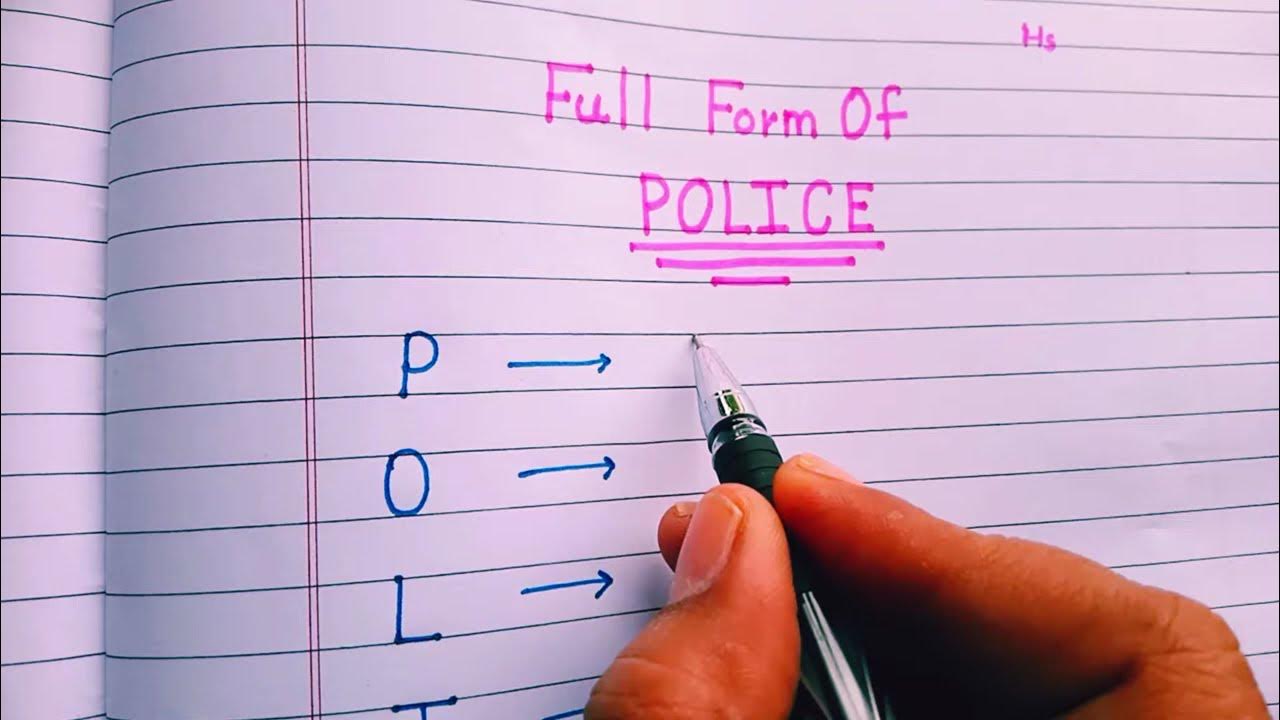 Hs
Full Form Of
POLICE
P →
O →
L →
I →